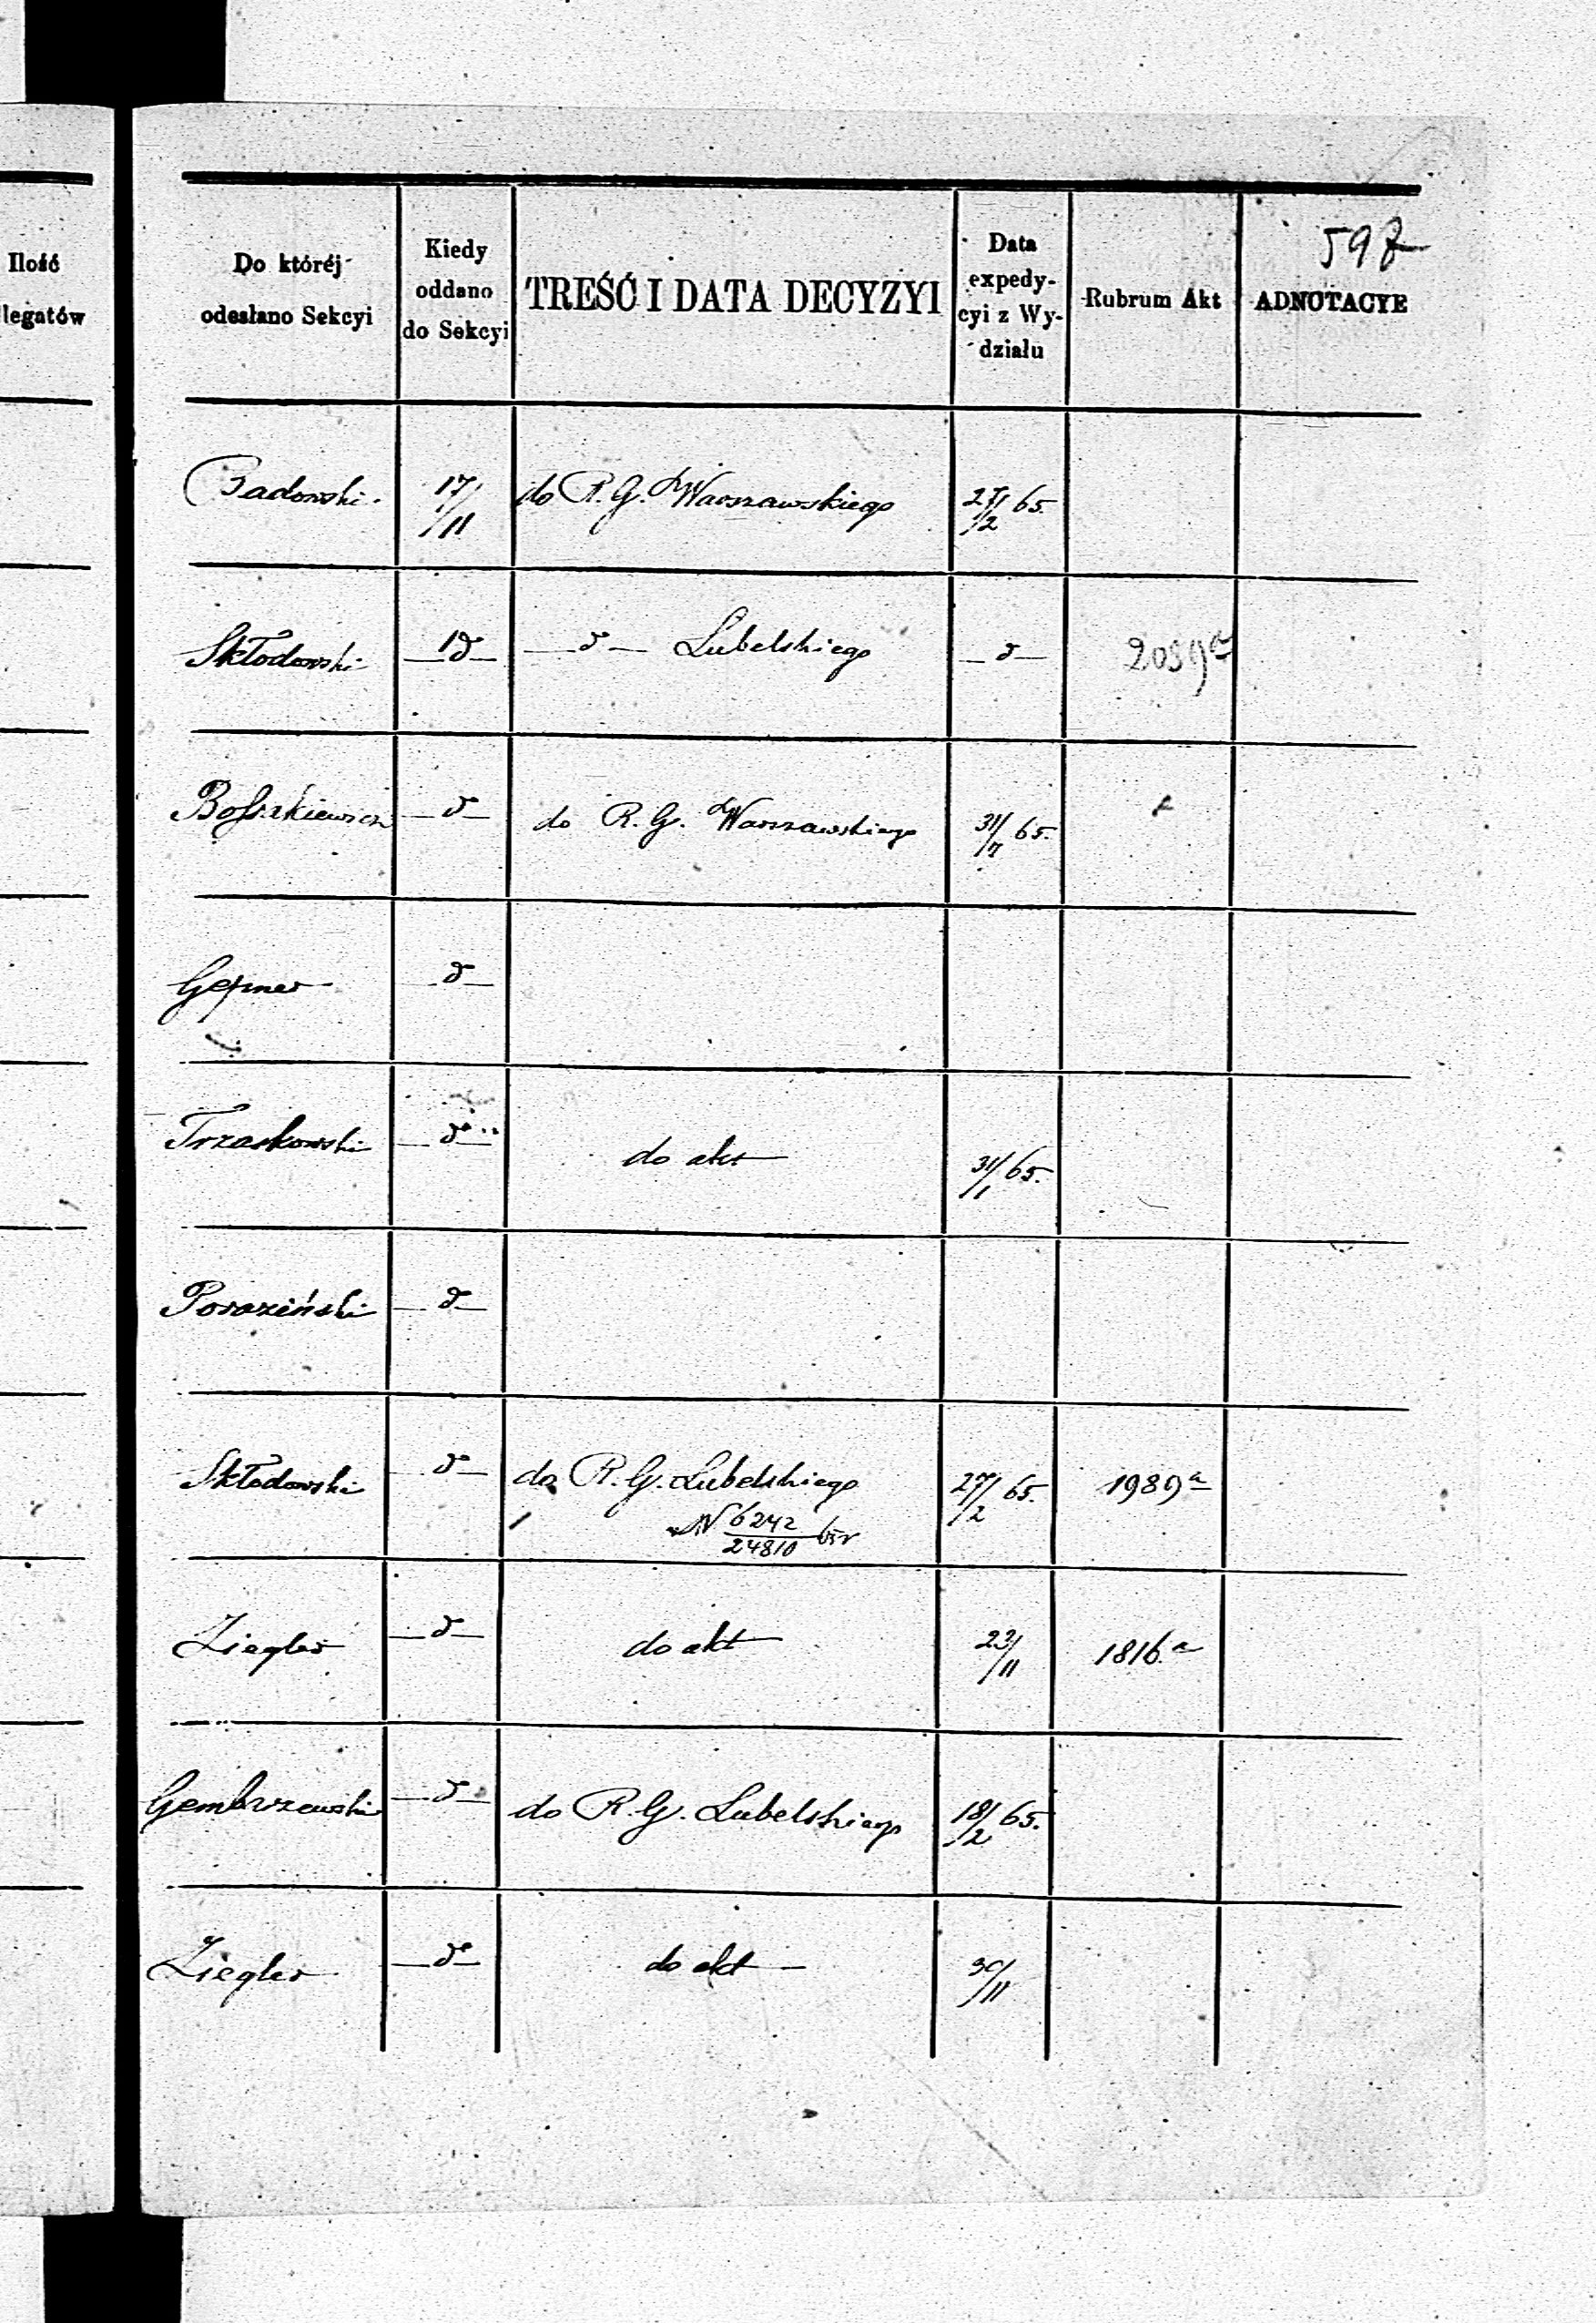 597
Ilość
legatów
Do któréj
odesłano Sekcyi
Kiedy
oddano
do Sekcyi
TREŚĆ I DATA DECYZYI
Data
expedy-
cyi z Wy-
działu
Rubrum Akt
ADNOTACYE
Badowski. 17/11 do R. G. Warszawskiego 27/2 65.
Skłodowski —d— —d— Lubelskiego —d—
—d— do R. G. Warszawskiego 65.
—d—
Trzaskowski —d— do akt 31/1 65.
Poraziński —d—
Skłodowski —d— do R. G. Lubelskiego 27/2 65. 1989a
N 6242/24810
Ziegler —d— do akt 23/11 1816.a
Gembrzewski —d— do R. G. Lubelskiego 18/2 65.
Ziegler —d— do akt — 30/11